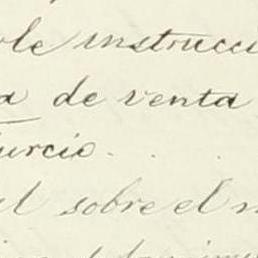 ole instrucci
a de venta
urcio.
al sobre el n